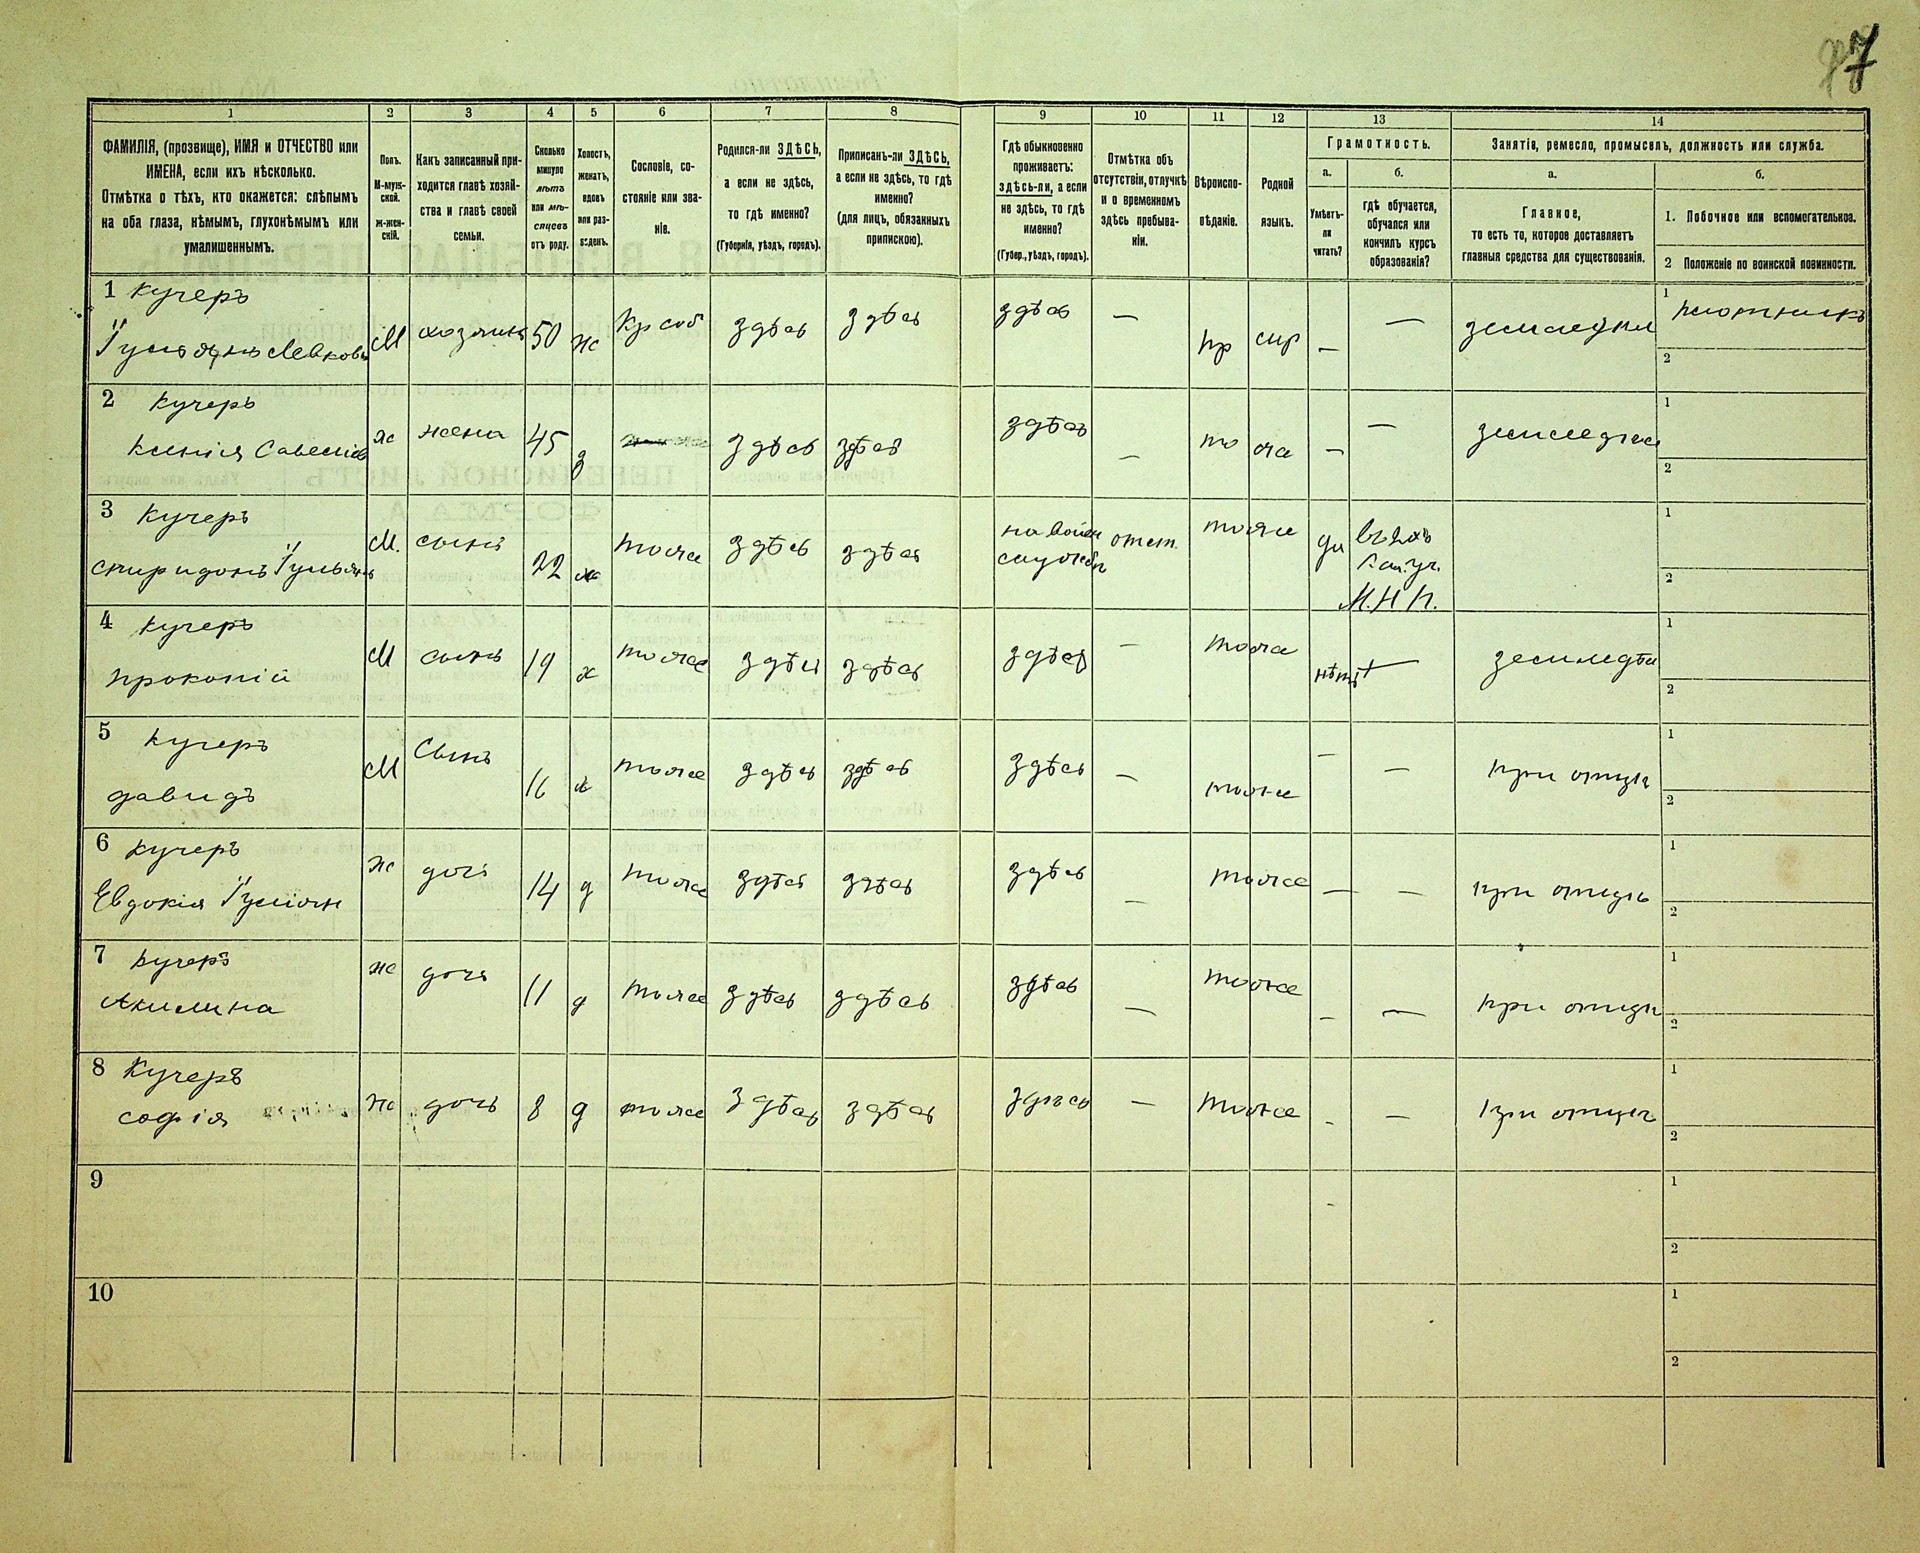 97
1 2 3 4 5 6 7 8 9 10 11 12 13 14
ФАМИЛІЯ, (прозвище), ИМЯ и ОТЧЕСТВО или
ИМЕНА, если ихъ нѣсколько.
Отмѣтка о тѣхъ, кто окажется: слѣпымъ
на оба глаза, нѣмымъ, глухонѣмымъ или
умалишеннымъ.
Полъ.
М-муж-
ской.
ж-жен-
скій.
Какъ записанный при-
ходится главѣ хозяй-
ства и главѣ своей
семьи.
Сколько
минуло
лѣтъ
или мѣ-
сяцевъ
отъ роду.
Холостъ,
женатъ,
вдовъ
или раз-
веденъ.
Сословіе, со-
стояніе или зва-
ніе.
Родился-ли ЗДѢСЬ,
а если не здѣсь,
то гдѣ именно?
(Губернія, уѣздъ, городъ).
Приписанъ-ли ЗДѢСЬ,
а если не здѣсь, то гдѣ
именно?
(для лицъ, обязанныхъ
припискою).
Гдѣ обыкновенно
проживаетъ:
здѣсь-ли, а если
не здѣсь, то гдѣ
именно?
(Губер., уѣздъ, городъ).
Отмѣтка объ
отсутствіи, отлучкѣ
и о временномъ
здѣсь пребыва-
ніи.
Вѣроиспо-
вѣданіе.
Родной
языкъ.
Грамотность.
а. б.
Умѣетъ-
ли
читать?
гдѣ обучается,
обучался или
кончилъ курсъ
образованія?
Занятіе, ремесло, промыселъ, должность или служба.
а. б.
Главное,
то есть то, которое доставляетъ
главныя средства для существованія.
1. Побочное или вспомогательное.
2 Положеніе по воинской повинности.
1 Кучеръ
М хозяинъ 50 ж Кр соб здѣсь здѣсь здѣсь — пр — — 1 плотникъ
2
2 Кучеръ
Ксенія ж жена 45 здѣсь здѣсь здѣсь — то же — — 1
2
3 Кучеръ
Спиридонъ М. сынъ 22 тоже здѣсь здѣсь отст. тоже да 1
М. Н П. 2
4 Кучеръ
прокопій М сынъ 19 х тоже здѣсь здѣсь здѣсь — тоже нѣтъ — 1
2
5 Кучеръ
давидъ М Сынъ 16 х тоже здѣсь здѣсь здѣсь — тоже — — при отцѣ 1
2
6 Кучеръ
Евдокія ж дочь 14 д тоже здѣсь здѣсь здѣсь — тоже — — при отцѣ 1
2
7 Кучеръ
Акилина ж дочь 11 д тоже здѣсь здѣсь здѣсь — тоже — — при отцѣ 1
2
8 Кучеръ
софія ж дочь 8 д тоже здѣсь здѣсь здѣсь — тоже - — при отцѣ 1
2
9 - 1
2
10 1
2